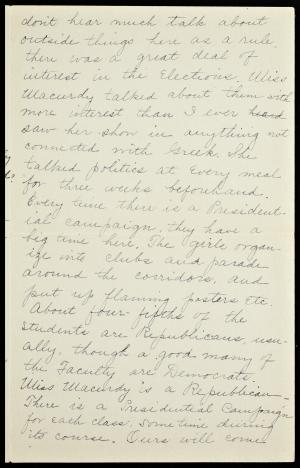 don't hear much talk about
outside things here as a rule,
there was a great deal of
interest in the Elections. Miss
Macurdy talked about them with
more interest than I ever heard
saw her show in anything not
connected with Greek. She
talked politics at every meal
for three weeks beforehand.
Every time there is a President-
ial campaign, they have a
big time here. The girls organ-
ize into clubs and parade
around the corridors, and
put up flaming posters Etc.
About four-fifths of the
students are Republicans, usu-
ally, though a good many of
the Faculty are Democrats.
Miss Macurdy is a Republican—
There is a Presidential Campaign
for each class, some time during
its course. Ours will come